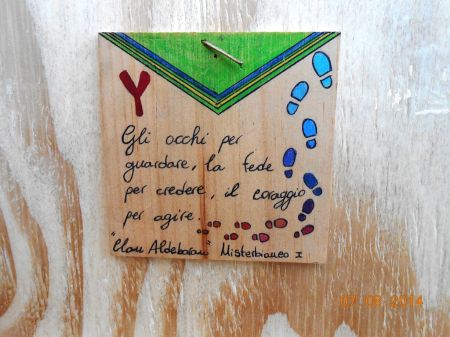 Y
Gli occhi per
guardare, la fede
per credere, il coraggio
per agire.
"Clan Aldebaran" Misterbianco I
07 08 2014